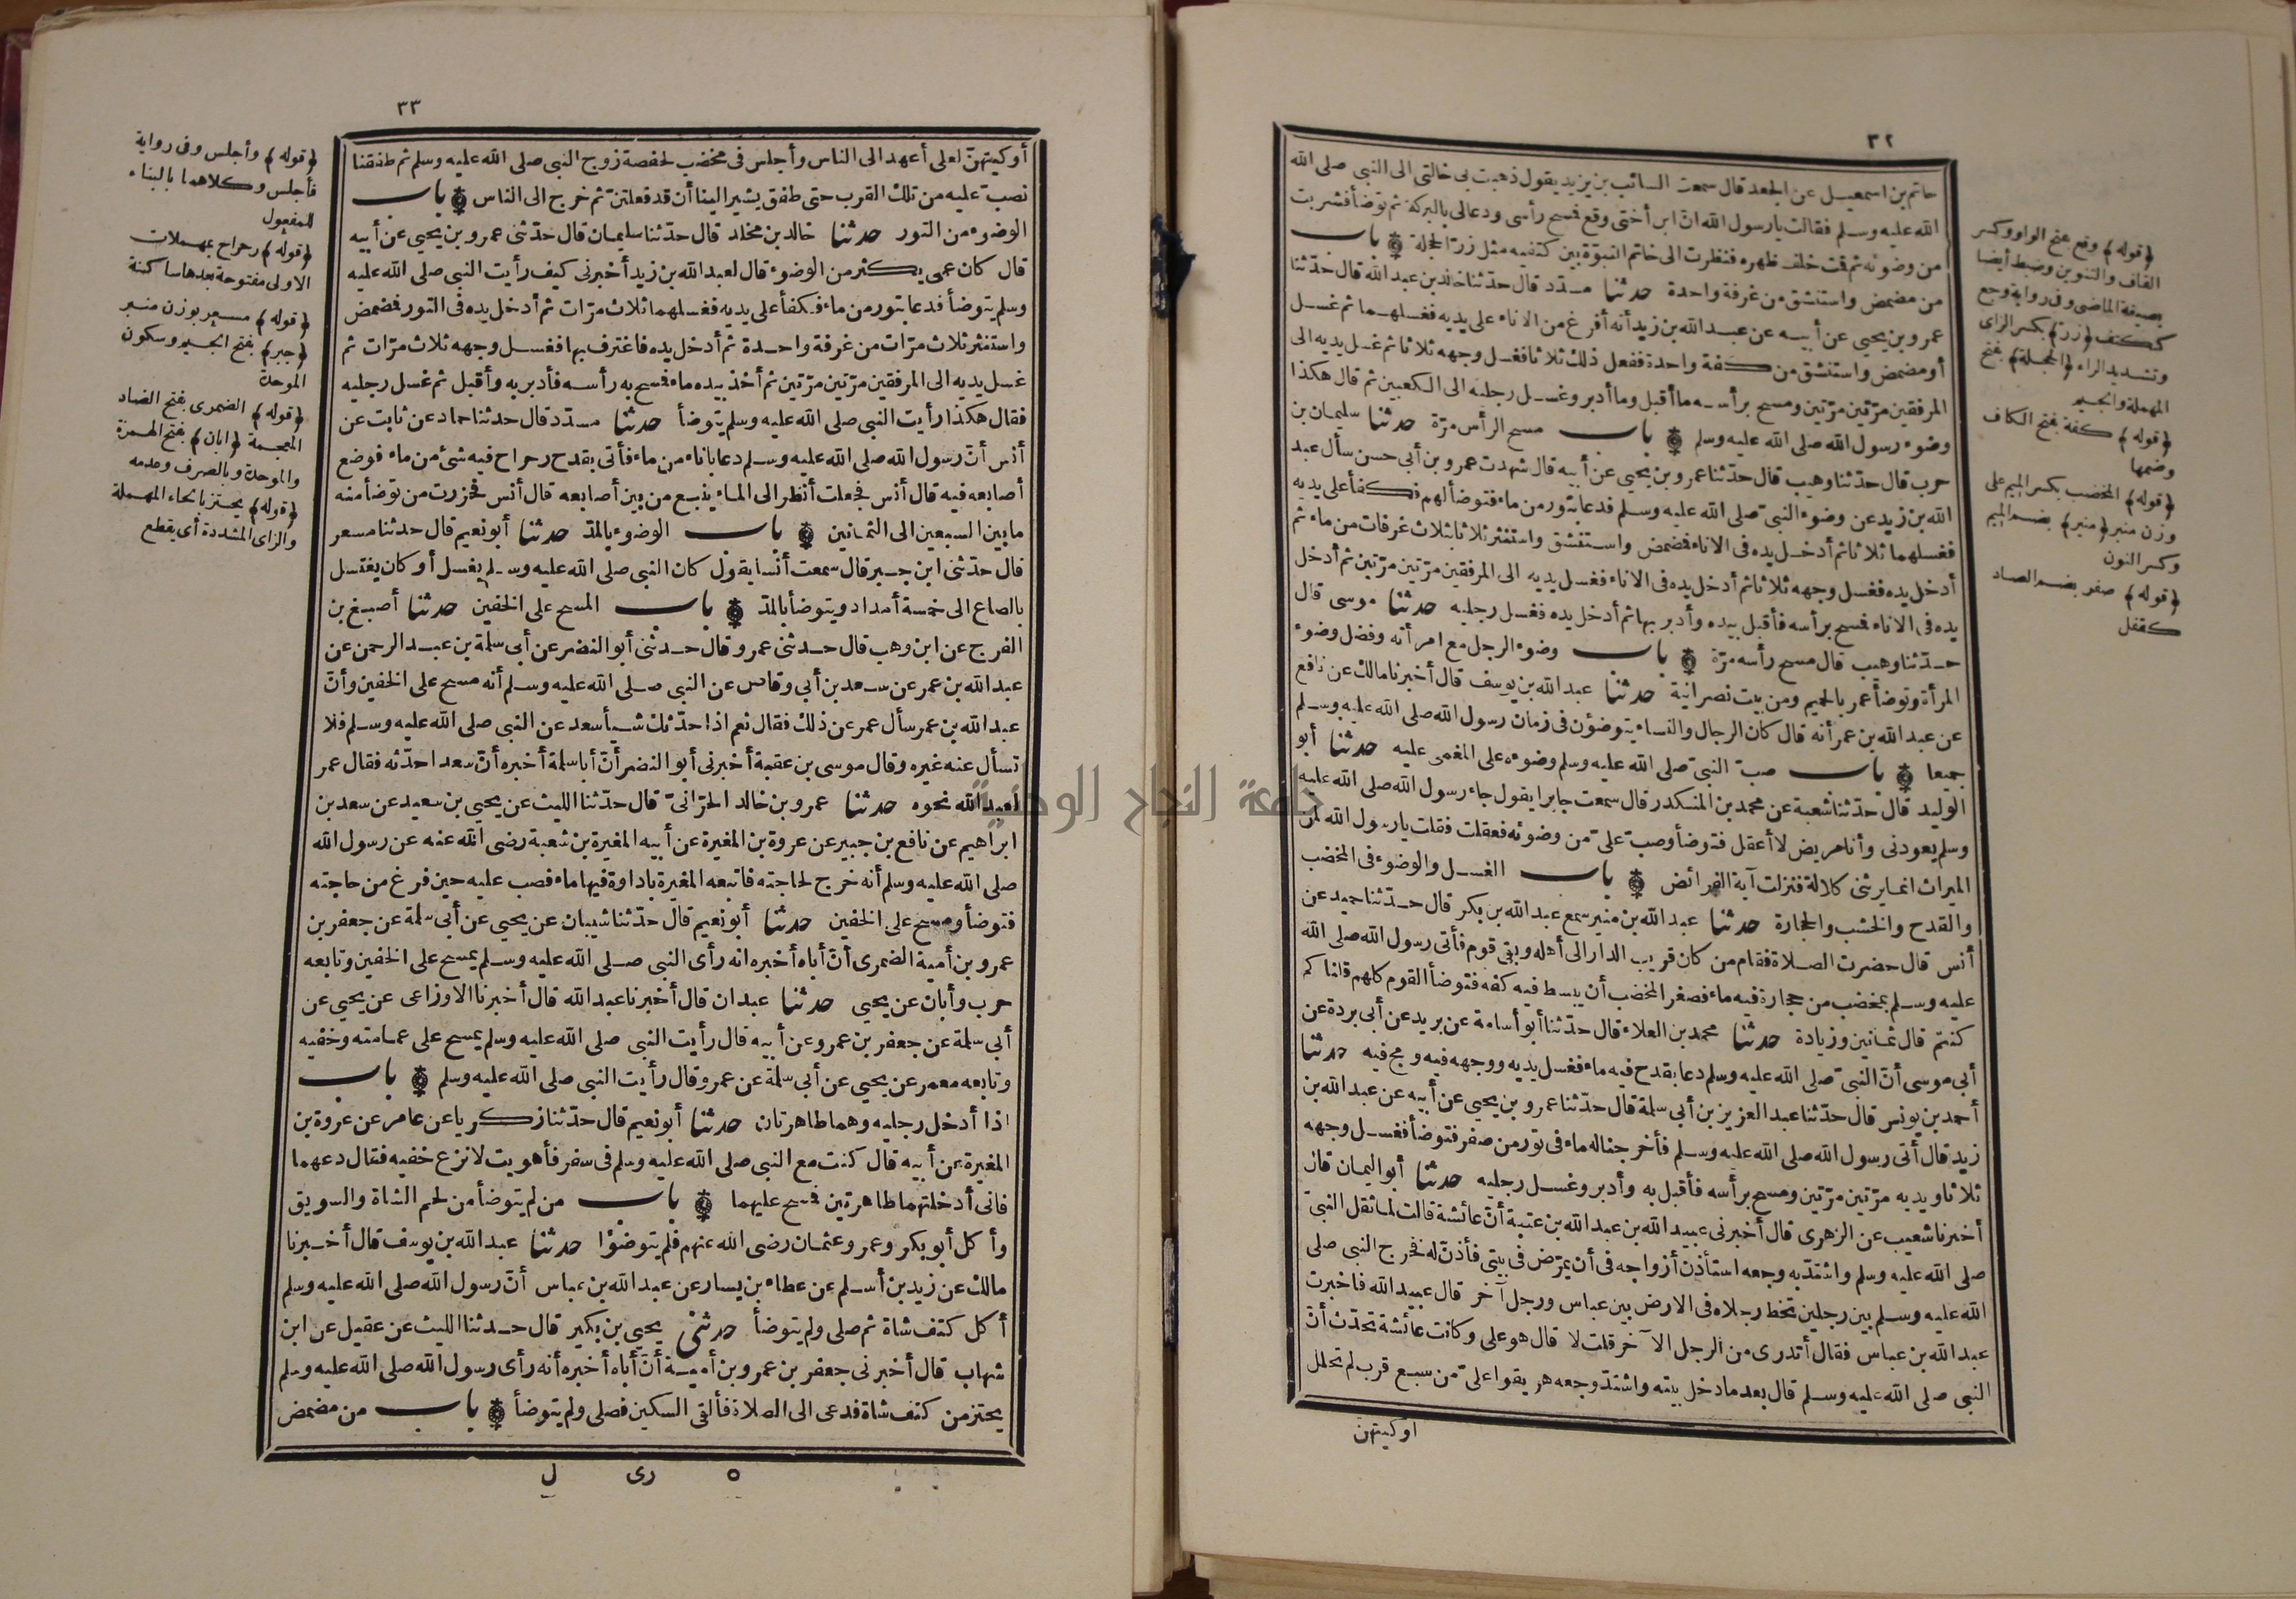 ٣٢
حاتم بن اسمعيل عن الجعد قال سمعت السائب بن يزيد يقول ذهبت بى خالتى الى النبى صلى الله
الله عليه وسلم فقالت يا رسول الله ان ابن أختى وقع فمسح رأسى ودعا لى بالبركة ثم توضأ فشربت
من وضوئه ثم قمت خلف ظهره فنظرت الى خاتم النبوة بين كتفيه مثل زر الحجلة باب
من مضمض واستنشق من غرفة واحدة حدثنا مسدد قال حدثنا خالد بن عبد الله قال حدثنا
عمرو بن يحيى عن أبيه عن عبد الله بن زيد أنه أفرغ من الاناء على يديه فغسلهما ثم غسل
أو مضمض واستنشق من كفة واحدة ففعل ذلك ثلاثا فغسل وجهه ثلاثا ثم غسل يديه الى
المرفقين مرتين مرتين ومسح برأسه ما أقبل وما أدبر وغسل رجليه الى الكعبين ثم قال هكذا
وضوء رسول الله صلى الله عليه وسلم باب مسح الرأس مرة حدثنا سليمان بن
حرب قال حدثنا وهيب قال حدثنا عمرو بن يحيى عن أبيه قال شهدت عمرو بن أبى حسن سأل عبد
الله بن زيد عن وضوء النبى صلى الله عليه وسلم فدعا بتور من ماء فتوضأ لهم فكفأ على يديه
فغسلهما ثلاثا ثم أدخل يده فى الاناء فمضمض واستنشق واستنثر ثلاثا بثلاث غرفات من ماء ثم
أدخل يده فغسل وجهه ثلاثا ثم أدخل يده فى الاناء فغسل يديه الى المرفقين مرتين مرتين ثم أدخل
يده فى الاناء فمسح برأسه فأقبل بيده وأدبر بها ثم أدخل يده فغسل رجليه حدثنا موسى قال
حدثنا وهيب قال مسح رأسه مرة باب وضوء الرجل مع امرأته وفضل وضوء
المرأة وتوضأ عمر بالحميم ومن بيت نصرانية حدثنا عبد الله بن يوسف قال أخبرنا مالك عن نافع
عن عبد الله بن عمر أنه قال كان الرجال والنساء يتوضؤن فى زمان رسول الله صلى الله عليه وسلم
جميعا باب صب النبى صلى الله عليه وسلم وضوءه على المغمى عليه حدثنا أبو
الوليد قال حدثنا شعبة عن محمد بن المنكدر قال سمعت جابرا يقول جاء رسول الله صلى الله عليه
وسلم يعودنى وأنا مريض لا أعقل فتوضأ وصب على من وضوئه فعقلت فقلت يا رسول الله لمن
الميراث انما يرثنى كلالة فنزلت آية الفرائض باب الغسل والوضوء فى المخضب
والقدح والخشب والحجارة حدثنا عبد الله بن منير سمع عبد الله بن بكر قال حدثنا حميد عن
أنس قال حضرت الصلاة فقام من كان قريب الدار الى أهله وبقى قوم فأتى رسول الله صلى الله
عليه وسلم بمخضب من حجارة فيه ماء فصغر المخضب أن يبسط فيه كفه فتوضأ القوم كلهم قلنا كم
كنتم قال ثمانين وزيادة حدثنا محمد بن العلاء قال حدثنا أبو أسامة عن بريد عن أبى بردة عن
أبى موسى أن النبى صلى الله عليه وسلم دعا بقدح فيه ماء فغسل يديه ووجهه فيه ومج فيه حدثنا
أحمد بن يونس قال حدثنا عبد العزيز بن أبى سلمة قال حدثنا عمرو بن يحيى عن أبيه عن عبد الله بن
زيد قال أتى رسول الله صلى الله عليه وسلم فأخرجنا له ماء فى تور من صفر فتوضأ فغسل وجهه
ثلاثا ويديه مرتين مرتين ومسح برأسه فأقبل به وأدبر وغسل رجليه حدثنا أبو اليمان قال
أخبرنا شعيب عن الزهرى قال أخبرنى عبيد الله بن عبد الله بن عتبة أن عائشة قالت لما ثقل النبى
صلى الله عليه وسلم واشتد به وجعه استأذن أزواجه فى أن يمرض فى بيتى فأذن له فخرج النبى صلى
الله عليه وسلم بين رجلين تخط رجلاه فى الارض بين عباس ورجل آخر قال عبيد الله فاخبرت
عبد الله بن عباس فقال أتدرى من الرجل الآخر قلت لا قال هو على وكانت عائشة تحدث أن
النبى صلى الله عليه وسلم قال بعد ما دخل بيته واشتد وجعه هريقوا على من سبع قرب لم تحلل
اوكيتهن
﴿قوله﴾ وقع بفتح الواو وكسر
القاف والتنوين وضبط أيضا
بصيغة الماضى وفى رواية وجع
ككتف ﴿زر﴾ بكسر الزاى
وتشديد الراء ﴿الحجلة﴾ بفتح
المهملة والجيم
﴿قوله﴾ كفة بفتح الكاف
وضمها
﴿قوله﴾ المخضب بكسر الميم على
وزن منبر ﴿منير﴾ بضم الميم
وكسر النون
﴿قوله﴾ صفر بضم الصاد
كقفل
٣٣
أوكيتهن لعلى أعهد الى الناس وأجلس فى مخضب لحفصة زوج النبى صلى الله عليه وسلم ثم طفقنا
نصب عليه من تلك القرب حتى طفق يشير الينا أن قد فعلتن ثم خرج الى الناس باب
الوضوء من التور حدثنا خالد بن مخلد قال حدثنا سليمان قال حدثنى عمرو بن يحيى عن أبيه
قال كان عمى يكثر من الوضوء قال لعبد الله بن زيد أخبرنى كيف رأيت النبى صلى الله عليه
وسلم يتوضأ فدعا بتور من ماء فكفأ على يديه فغسلهما ثلاث مرات ثم أدخل يده فى التور فمضمض
واستنثر ثلاث مرات من غرفة واحدة ثم أدخل يده فاغترف بها فغسل وجهه ثلاث مرات ثم
غسل يديه الى المرفقين مرتين مرتين ثم أخذ بيده ماء فمسح به رأسه فأدبر به وأقبل ثم غسل رجليه
فقال هكذا رأيت النبى صلى الله عليه وسلم يتوضأ حدثنا مسدد قال حدثنا حماد عن ثابت عن
أنس أن رسول الله صلى الله عليه وسلم دعا باناء من ماء فأتى بقدح رحراح فيه شئ من ماء فوضع
أصابعه فيه قال أنس فجعلت أنظر الى الماء ينبع من بين أصابعه قال أنس فحزرت من توضأ منه
ما بين السبعين الى الثمانين باب الوضوء بالمد حدثنا أبو نعيم قال حدثنا مسعر
قال حدثنى ابن جبر قال سمعت أنسا يقول كان النبى صلى الله عليه وسلم يغسل أو كان يغتسل
بالصاع الى خمسة أمداد ويتوضأ بالمد باب المسح على الخفين حدثنا أصبغ بن
الفرج عن ابن وهب قال حدثنى عمرو قال حدثنى أبو النضر عن أبى سلمة بن عبد الرحمن عن
عبد الله بن عمر عن سعد بن أبى وقاص عن النبى صلى الله عليه وسلم أنه مسح على الخفين وأن
عبد الله بن عمر سأل عمر عن ذلك فقال نعم اذا حدثك شيأ سعد عن النبى صلى الله عليه وسلم فلا
تسأل عنه غيره وقال موسى بن عقبة أخبرنى أبو النضر أن أبا سلمة أخبره أن سعدا حدثه فقال عمر
لعبد الله نحوه حدثنا عمرو بن خالد الحرانى قال حدثنا الليث عن يحيى بن سعيد عن سعد بن
ابراهيم عن نافع بن جبير عن عروة بن المغيرة عن أبيه المغيرة بن شعبة رضى الله عنه عن رسول الله
صلى الله عليه وسلم أنه خرج لحاجته فاتبعه المغيرة باداوة فيها ماء فصب عليه حين فرغ من حاجته
فتوضأ ومسح على الخفين حدثنا أبو نعيم قال حدثنا شيبان عن يحيى عن أبى سلمة عن جعفر بن
عمرو بن أمية الضمرى أن أباه أخبره انه رأى النبى صلى الله عليه وسلم يمسح على الخفين وتابعه
حرب وأبان عن يحيى حدثنا عبدان قال أخبرنا عبد الله قال أخبرنا الاوزاعى عن يحيى عن
أبى سلمة عن جعفر بن عمرو عن أبيه قال رأيت النبى صلى الله عليه وسلم يمسح على عمامته وخفيه
وتابعه معمر عن يحيى عن أبى سلمة عن عمرو قال رأيت النبى صلى الله عليه وسلم باب
اذا أدخل رجليه وهما طاهرتان حدثنا أبو نعيم قال حدثنا زكريا عن عامر عن عروة بن
المغيرة عن أبيه قال كنت مع النبى صلى الله عليه وسلم فى سفر فأهويت لانزع خفيه فقال دعهما
فانى أدخلتهما طاهرتين فمسح عليهما باب من لم يتوضأ من لحم الشاة والسويق
وأكل أبو بكر وعمر وعثمان رضى الله عنهم فلم يتوضؤا حدثنا عبد الله بن يوسف قال أخبرنا
مالك عن زيد بن أسلم عن عطاء بن يسار عن عبد الله بن عباس أن رسول الله صلى الله عليه وسلم
أكل كتف شاة ثم صلى ولم يتوضأ حدثنى يحيى بن بكير قال حدثنا الليث عن عقيل عن ابن
شهاب قال أخبرنى جعفر بن عمرو بن أمية أن أباه أخبره أنه رأى رسول الله صلى الله عليه وسلم
يحتز من كتف شاة فدعى الى الصلاة فألقى السكين فصلى ولم يتوضأ باب من مضمض
٥ رى ل
﴿قوله﴾ وأجلس وفى رواية
فأجلس وكلاهما بالبناء
للمفعول
﴿قوله﴾ رحراح بمهملات
الاولى مفتوحة بعدها ساكنة
﴿قوله﴾ مسعر بوزن منبر
﴿جبر﴾ بفتح الجيم وسكون
الموحدة
﴿قوله﴾ الضمرى بفتح الضاد
المعجمة ﴿ابان﴾ بفتح الهمزة
والموحدة وبالصرف وعدمه
﴿قوله﴾ يحتز بالحاء المهملة
والزاى المشددة أى يقطع
جامعة النجاح الوطنية